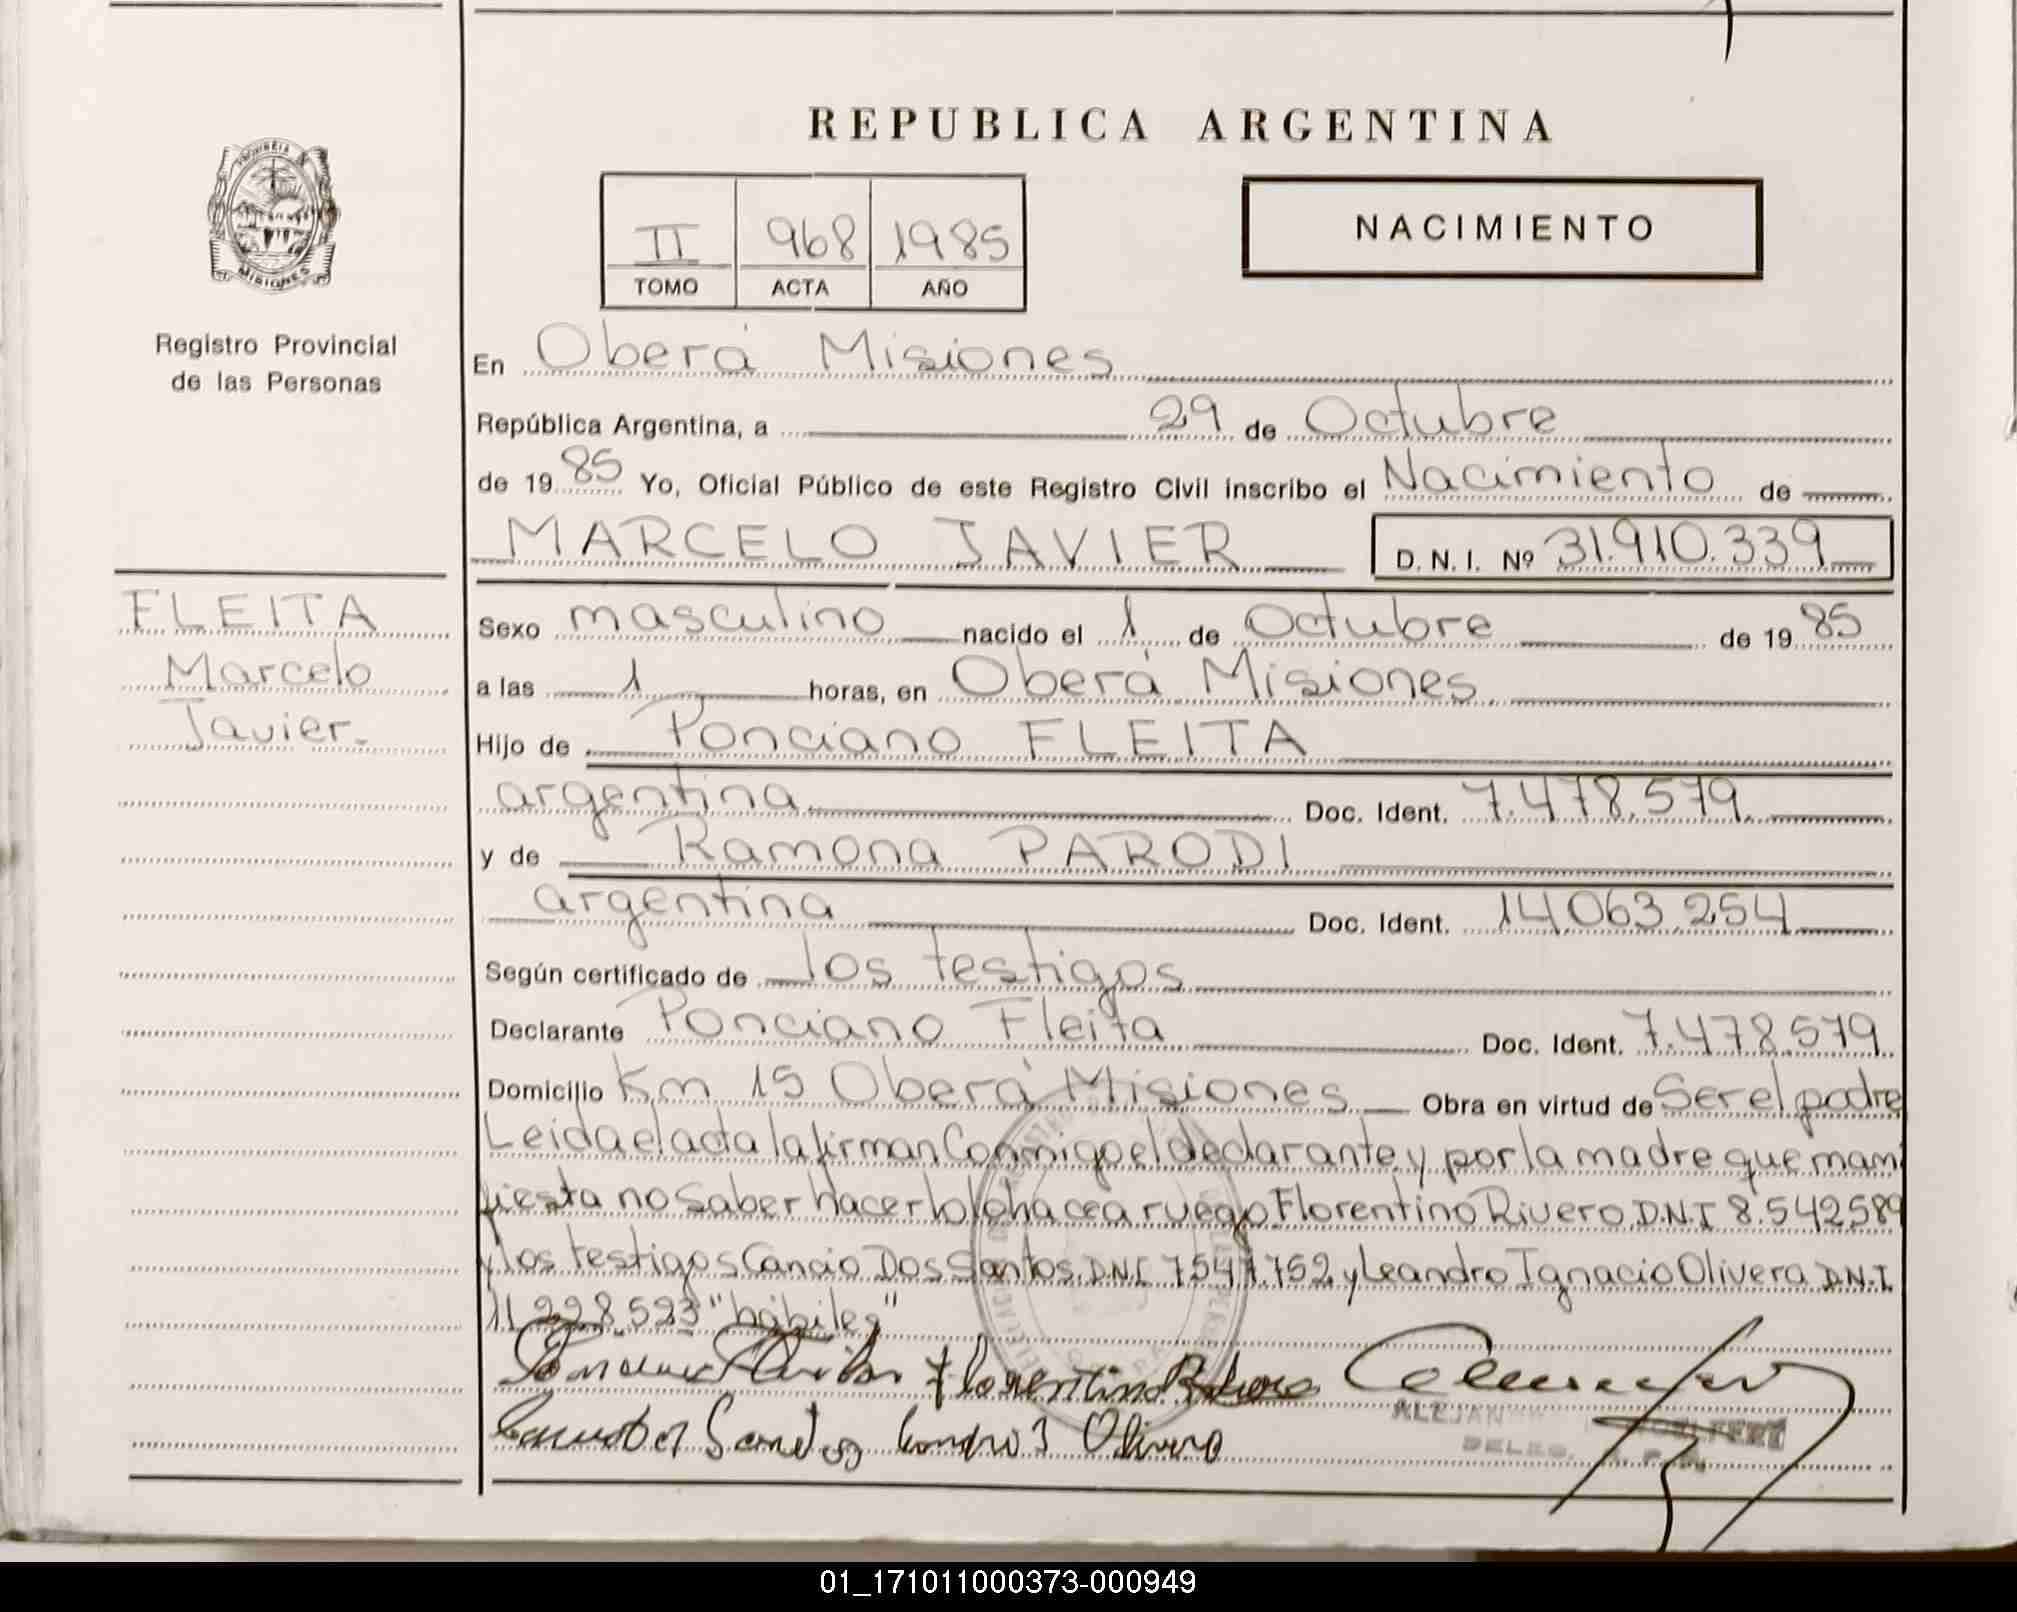 REPUBLICA ARGENTINA
PROVINCIA
MISIONES
Registro Provincial
de las Personas
II 968 1985
TOMO ACTA AÑO
NACIMIENTO
En Oberá Misiones
República Argentina, a 29 de Octubre
de 1985 Yo, Oficial Público de este Registro Civil inscribo el Nacimiento de
MARCELO JAVIER D. N. I. Nº 31.910.339
FLEITA
Marcelo
Javier.
Sexo masculino nacido el 1 de Octubre de 1985
a las 1 horas, en Oberá Misiones
Hijo de Ponciano FLEITA
argentina Doc. Ident. 7.478.579
y de Ramona PARODI
argentina Doc. Ident. 14.063.254
Según certificado de los testigos
Declarante Ponciano Fleita Doc. Ident. 7.478.579
Domicilio Km 15 Oberá Misiones Obra en virtud de Ser el padre
Leida el acta la firman Conmigo el declarante y por la madre que mani
fiesta no Saber hacerlo lo hace a ruego Florentino Rivero D.N.I 8.542589
y los testigos Cancio Dos Santos D.N.I 7541.752 y Leandro Ignacio Olivera D.N.I
11.228.523 "hábiles"
Florentino Rivero
Olivera
DELEG.
01_171011000373-000949